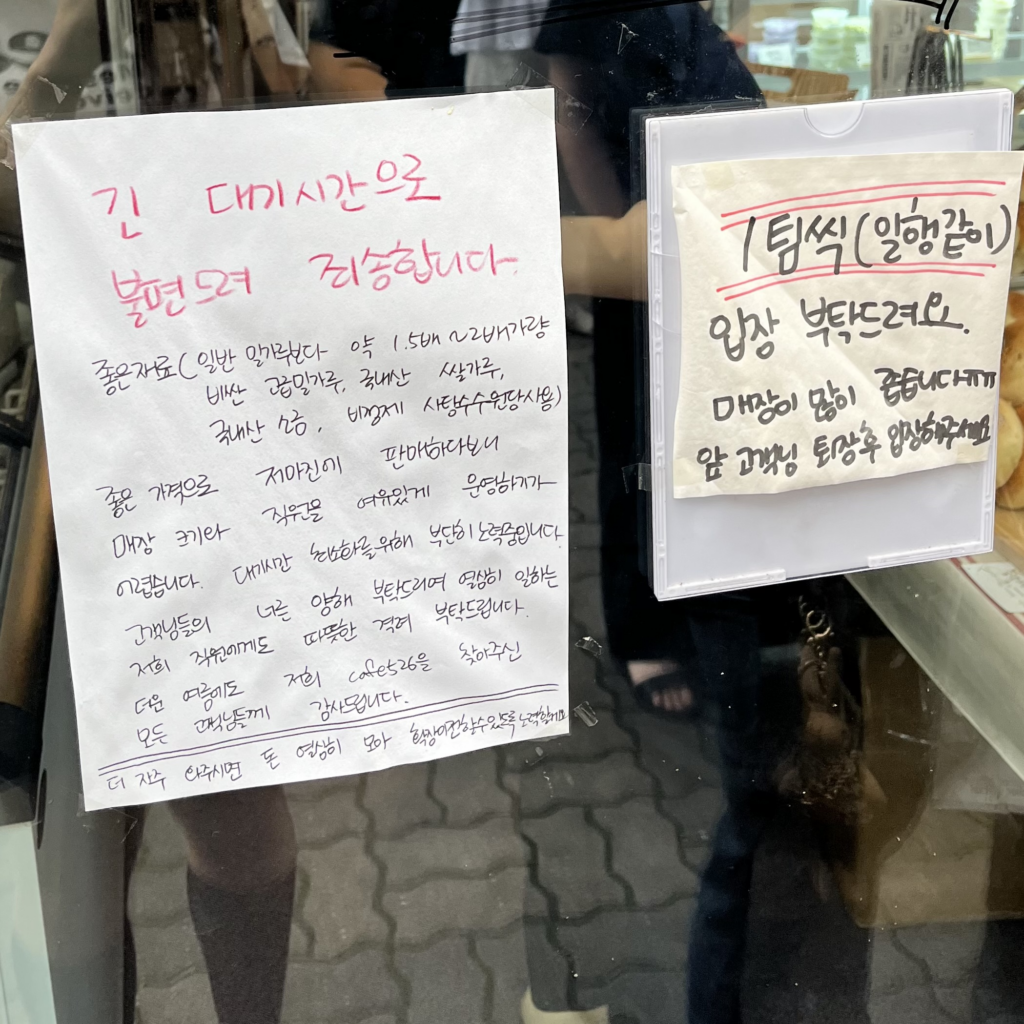 긴 대기시간으로
불편드려 죄송합니다.
좋은재료(일반 밀가루보다 약 1.5배~2배가량
비싼 고급밀가루, 국내산 쌀가루,
국내산 소금, 비정제 사탕수수원당사용)
좋은 가격으로 저마진에 판매하다보니
매장 크기와 직원을 여유있게 운영하기가
어렵습니다. 대기시간 최소화를위해 부단히노력중입니다.
고객님들의 너른 양해 부탁드리며 열심히 일하는
저희 직원에게도 따뜻한 격려 부탁드립니다.
더운 여름에도 저희 cafe526을 찾아주신
모든 고객님들께 감사드립니다.
더 자주 와주시면 돈 열심히 모아 확장이전할수있도록노력할게요
1팀씩(일행같이)
입장 부탁드려요.
매장이 많이 좁습니다ㅠㅠ
앞 고객님 퇴장후 입장해주세요